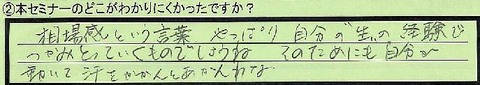 ②本セミナーのどこがわかりにくかったですか？
相場感という言葉 やっぱり 自分の"生"の経験で
つかみとっていくものでしょうね そのためにも自分が
動いて汗をかかんとあかんわな